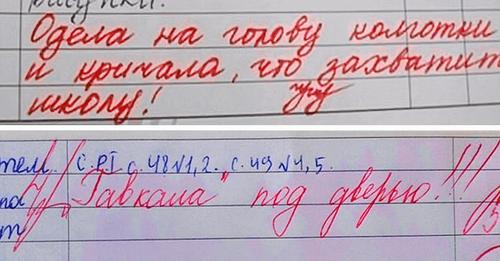 рисунки.
Одела на голову колготки
и кричала, что захватит
школу!
тем. С. РТ с. 48 №1, 2. с. 49 №4, 5.
"Гавкала" под дверью!!!